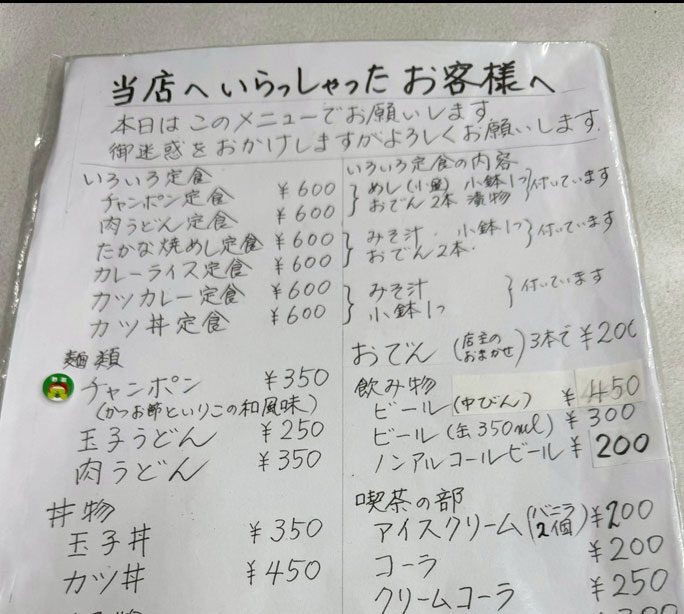 当店へいらっしゃったお客様へ
本日はこのメニューでお願いします
御迷惑をおかけしますがよろしくお願いします.
いろいろ定食
チャンポン定食 ¥600
肉うどん定食 ¥600
たかな焼めし定食 ¥600
カレーライス定食 ¥600
カツカレー定食 ¥600
カツ丼定食 ¥600
麺類
チャンポン ¥350
(かつお節といりこの和風味)
玉子うどん ¥250
肉うどん ¥350
丼物
玉子丼 ¥350
カツ丼 ¥450
いろいろ定食の内容
めし(小盛) 小鉢1つ 付いています
おでん2本 漬物
みそ汁・小鉢1つ 付いています
おでん2本.
みそ汁 付いています
小鉢1つ
おでん (店主のおまかせ) 3本で ¥200
飲み物
ビール(中びん) ¥450
ビール(缶350ml) ¥300
ノンアルコールビール ¥200
喫茶の部
アイスクリーム(バニラ2個) ¥200
コーラ ¥200
クリームコーラ ¥250